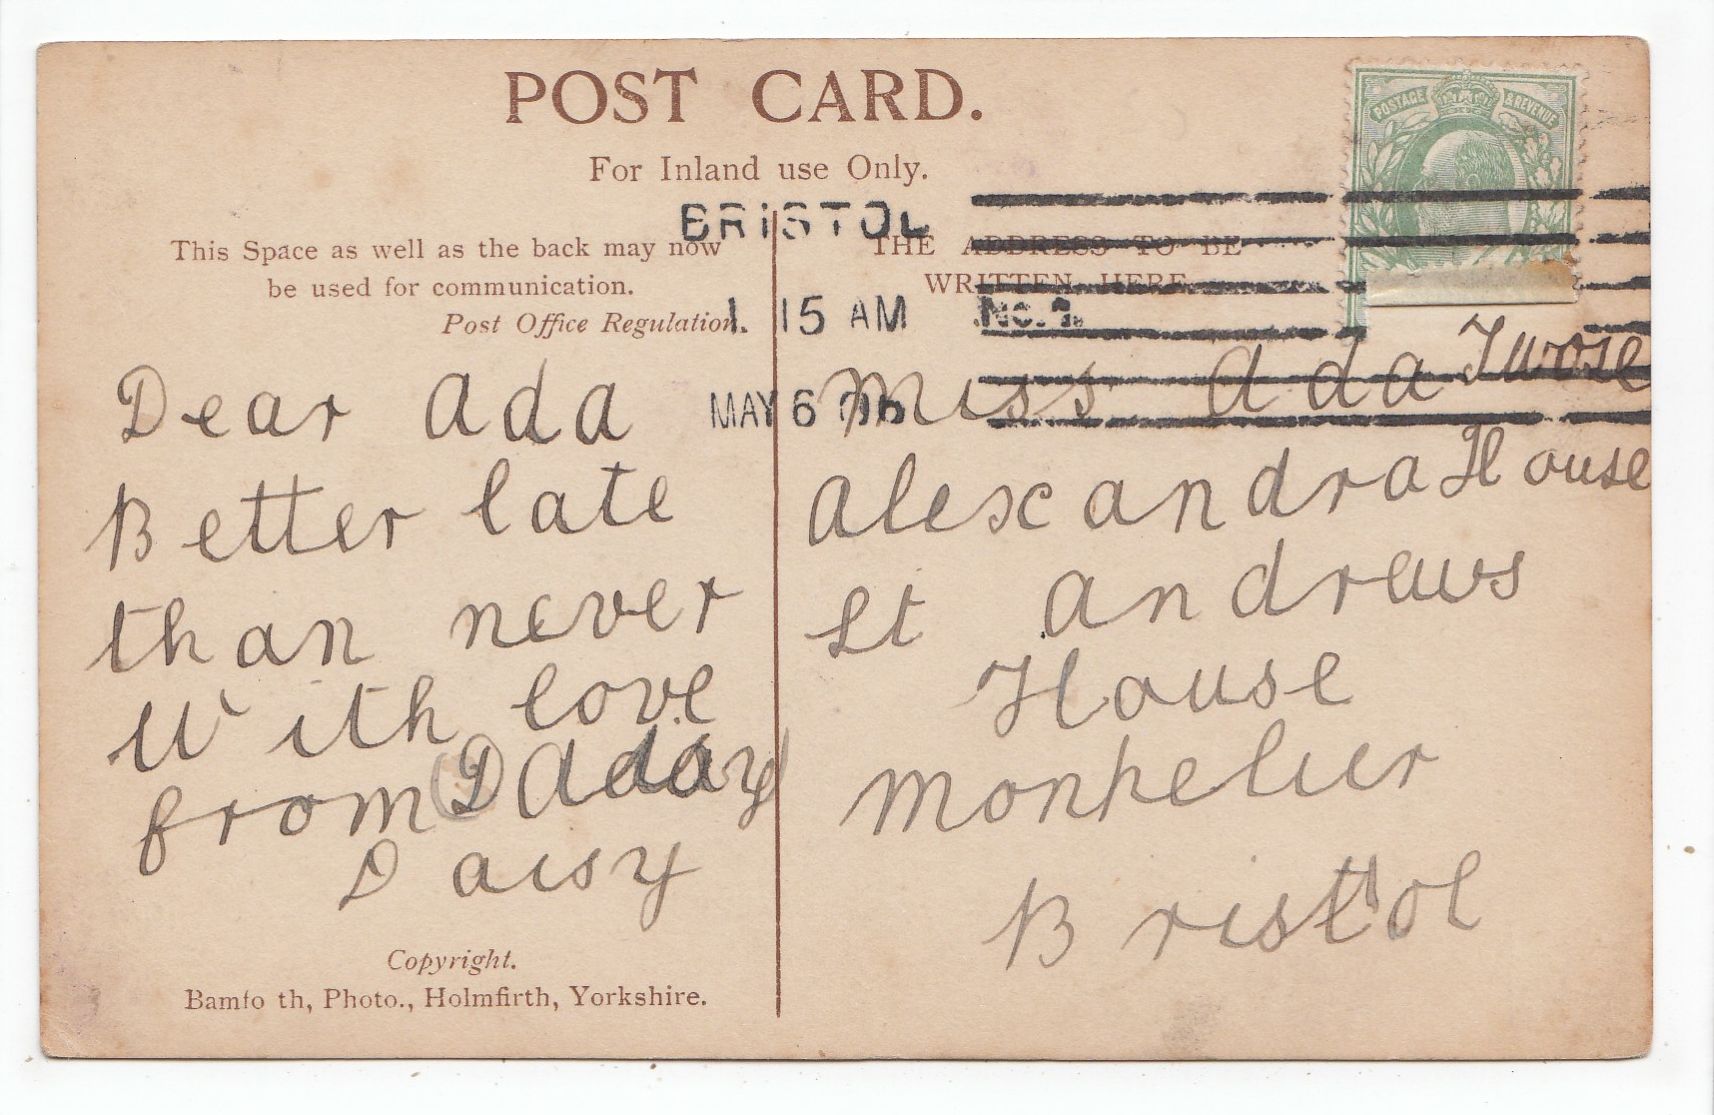 POST CARD.
For Inland use Only.
POSTAGE & REVENUE
BRISTOL
This Space as well as the back may now
be used for communication.
Post Office Regulation.
THE ADDRESS TO BE
WRITTEN HERE
1 15 AM
MAY 6
Dear Ada
Better late
than never
With love
from
Daisy
Miss Ada Twose
Alexandra House
St Andrews
House
Monpelier
Bristol
Copyright.
Bamfo th, Photo., Holmfirth, Yorkshire.